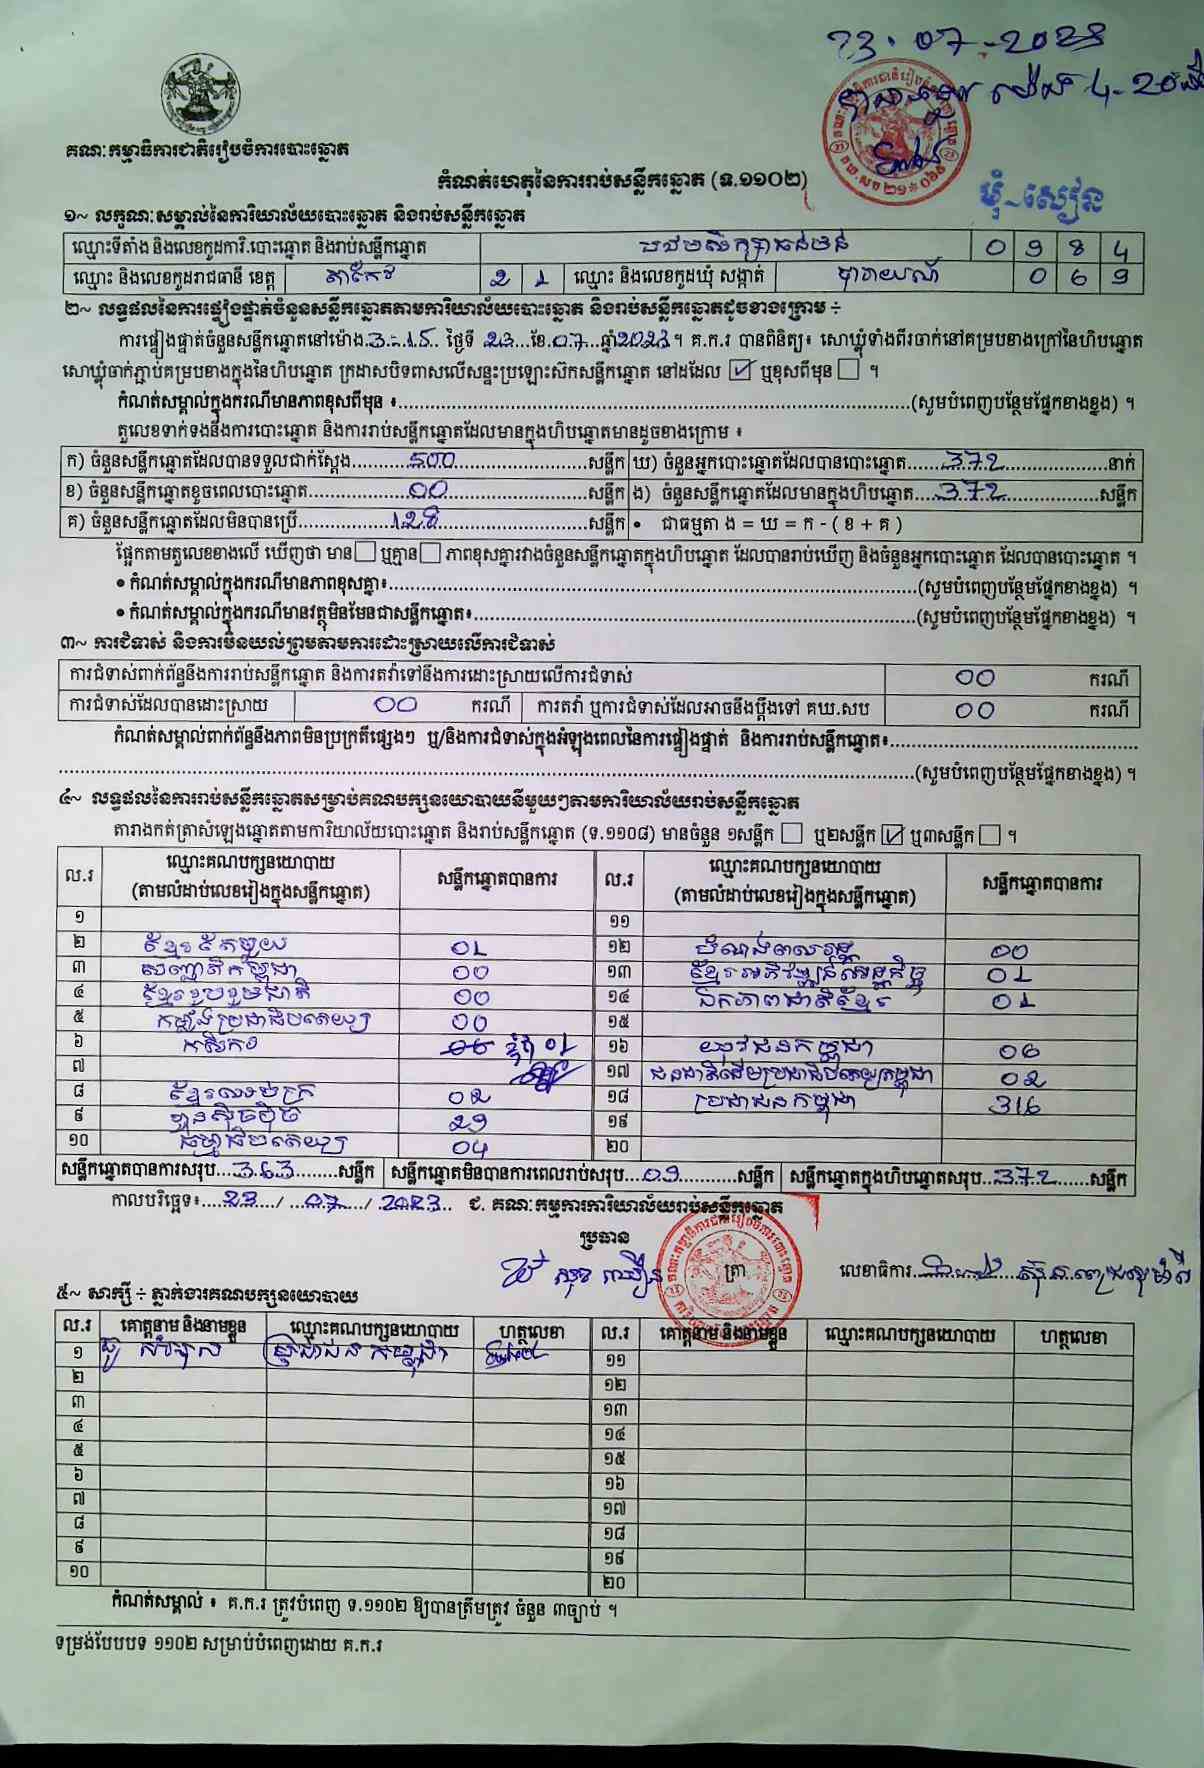 23.07-2023
ម៉ោង 4-20នាទី
គណៈកម្មាធិការជាតិរៀបចំការបោះឆ្នោត
កំណត់ហេតុនៃការរាប់សន្លឹកឆ្នោត (ទ.១១០២)
១~ លក្ខណៈសម្គាល់នៃការិយាល័យបោះឆ្នោត និងរាប់សន្លឹកឆ្នោត
ឈ្មោះទីតាំង និងលេខកូដការិ.បោះឆ្នោត និងរាប់សន្លឹកឆ្នោត 0 9 8 4
ឈ្មោះ និងលេខកូដរាជធានី ខេត្ត តាកែវ 2 1 ឈ្មោះ និងលេខកូដឃុំ សង្កាត់ 0 6 9
២~ លទ្ធផលនៃការផ្ទៀងផ្ទាត់ចំនួនសន្លឹកឆ្នោតតាមការិយាល័យបោះឆ្នោត និងរាប់សន្លឹកឆ្នោតដូចខាងក្រោម ÷
ការផ្ទៀងផ្ទាត់ចំនួនសន្លឹកឆ្នោតនៅម៉ោង 3-15 ថ្ងៃទី 23 ខែ 07 ឆ្នាំ 2023 ។ គ.ក.រ បានពិនិត្យ៖ សោឃ្លុំទាំងពីរចាក់នៅគម្របខាងក្រៅនៃហិបឆ្នោត
សោឃ្លុំចាក់ភ្ជាប់គម្របខាងក្នុងនៃហិបឆ្នោត ក្រដាសបិទពាសលើសន្ទះប្រឡោះស៊កសន្លឹកឆ្នោត នៅដដែល ☑ ឬខុសពីមុន ☐ ។
កំណត់សម្គាល់ក្នុងករណីមានភាពខុសពីមុន ៖ (សូមបំពេញបន្ថែមផ្នែកខាងខ្នង) ។
តួលេខទាក់ទងនឹងការបោះឆ្នោត និងការរាប់សន្លឹកឆ្នោតដែលមានក្នុងហិបឆ្នោតមានដូចខាងក្រោម ៖
ក) ចំនួនសន្លឹកឆ្នោតដែលបានទទួលជាក់ស្តែង 500 សន្លឹក ឃ) ចំនួនអ្នកបោះឆ្នោតដែលបានបោះឆ្នោត 372 នាក់
ខ) ចំនួនសន្លឹកឆ្នោតខូចពេលបោះឆ្នោត 00 សន្លឹក ង) ចំនួនសន្លឹកឆ្នោតដែលមានក្នុងហិបឆ្នោត 372 សន្លឹក
គ) ចំនួនសន្លឹកឆ្នោតដែលមិនបានប្រើ 128 សន្លឹក • ជាធម្មតា ង = ឃ = ក - ( ខ + គ )
ផ្អែកតាមតួលេខខាងលើ ឃើញថា មាន ☐ ឬគ្មាន ☐ ភាពខុសគ្នារវាងចំនួនសន្លឹកឆ្នោតក្នុងហិបឆ្នោត ដែលបានរាប់ឃើញ និងចំនួនអ្នកបោះឆ្នោត ដែលបានបោះឆ្នោត ។
• កំណត់សម្គាល់ក្នុងករណីមានភាពខុសគ្នា៖ (សូមបំពេញបន្ថែមផ្នែកខាងខ្នង) ។
• កំណត់សម្គាល់ក្នុងករណីមានវត្ថុមិនមែនជាសន្លឹកឆ្នោត៖ (សូមបំពេញបន្ថែមផ្នែកខាងខ្នង) ។
៣~ ការជំទាស់ និងការមិនយល់ព្រមតាមការដោះស្រាយលើការជំទាស់
ការជំទាស់ពាក់ព័ន្ធនឹងការរាប់សន្លឹកឆ្នោត និងការតវ៉ាទៅនឹងការដោះស្រាយលើការជំទាស់ 00 ករណី
ការជំទាស់ដែលបានដោះស្រាយ 00 ករណី ការតវ៉ា ឬការជំទាស់ដែលអាចនឹងប្តឹងទៅ គឃ.សប 00 ករណី
កំណត់សម្គាល់ពាក់ព័ន្ធនឹងភាពមិនប្រក្រតីផ្សេងៗ ឬ/និងការជំទាស់ក្នុងអំឡុងពេលនៃការផ្ទៀងផ្ទាត់ និងការរាប់សន្លឹកឆ្នោត៖
(សូមបំពេញបន្ថែមផ្នែកខាងខ្នង) ។
៤~ លទ្ធផលនៃការរាប់សន្លឹកឆ្នោតសម្រាប់គណបក្សនយោបាយនីមួយៗតាមការិយាល័យរាប់សន្លឹកឆ្នោត
តារាងកត់ត្រាសំឡេងឆ្នោតតាមការិយាល័យបោះឆ្នោត និងរាប់សន្លឹកឆ្នោត (ទ.១១០៨) មានចំនួន ១សន្លឹក ☐ ឬ២សន្លឹក ☑ ឬ៣សន្លឹក ☐ ។
ល.រ ឈ្មោះគណបក្សនយោបាយ (តាមលំដាប់លេខរៀងក្នុងសន្លឹកឆ្នោត) សន្លឹកឆ្នោតបានការ ល.រ ឈ្មោះគណបក្សនយោបាយ (តាមលំដាប់លេខរៀងក្នុងសន្លឹកឆ្នោត) សន្លឹកឆ្នោតបានការ
១ ១១
២ ខ្មែរតែមួយ 01 ១២ 00
៣ សញ្ជាតិកម្ពុជា 00 ១៣ ខ្មែរអភិវឌ្ឍន៍សេដ្ឋកិច្ច 01
៤ ខ្មែររួបរួមជាតិ 00 ១៤ ឯកភាពជាតិខ្មែរ 01
៥ កម្លាំងប្រជាធិបតេយ្យ 00 ១៥
៦ កសិករ 01 ១៦ យុវជនកម្ពុជា 06
៧ ១៧ ជនជាតិដើមប្រជាធិបតេយ្យកម្ពុជា 02
៨ ខ្មែរឈប់ក្រ 02 ១៨ ប្រជាជនកម្ពុជា 316
៩ ហ៊្វុនស៊ិនប៉ិច 29 ១៩
១០ ធម្មាធិបតេយ្យ 04 ២០
សន្លឹកឆ្នោតបានការសរុប 363 សន្លឹក សន្លឹកឆ្នោតមិនបានការពេលរាប់សរុប 09 សន្លឹក សន្លឹកឆ្នោតក្នុងហិបឆ្នោតសរុប 372 សន្លឹក
កាលបរិច្ឆេទ៖ 23 / 07 / 2023 ជ. គណៈកម្មការការិយាល័យរាប់សន្លឹកឆ្នោត
ប្រធាន
ត្រា
លេខាធិការ
៥~ សាក្សី ÷ ភ្នាក់ងារគណបក្សនយោបាយ
ល.រ គោត្តនាម និងនាមខ្លួន ឈ្មោះគណបក្សនយោបាយ ហត្ថលេខា ល.រ គោត្តនាម និងនាមខ្លួន ឈ្មោះគណបក្សនយោបាយ ហត្ថលេខា
១ ប្រជាជនកម្ពុជា ១១
២ ១២
៣ ១៣
៤ ១៤
៥ ១៥
៦ ១៦
៧ ១៧
៨ ១៨
៩ ១៩
១០ ២០
កំណត់សម្គាល់ ៖ គ.ក.រ ត្រូវបំពេញ ទ.១១០២ ឱ្យបានត្រឹមត្រូវ ចំនួន ៣ច្បាប់ ។
ទម្រង់បែបបទ ១១០២ សម្រាប់បំពេញដោយ គ.ក.រ